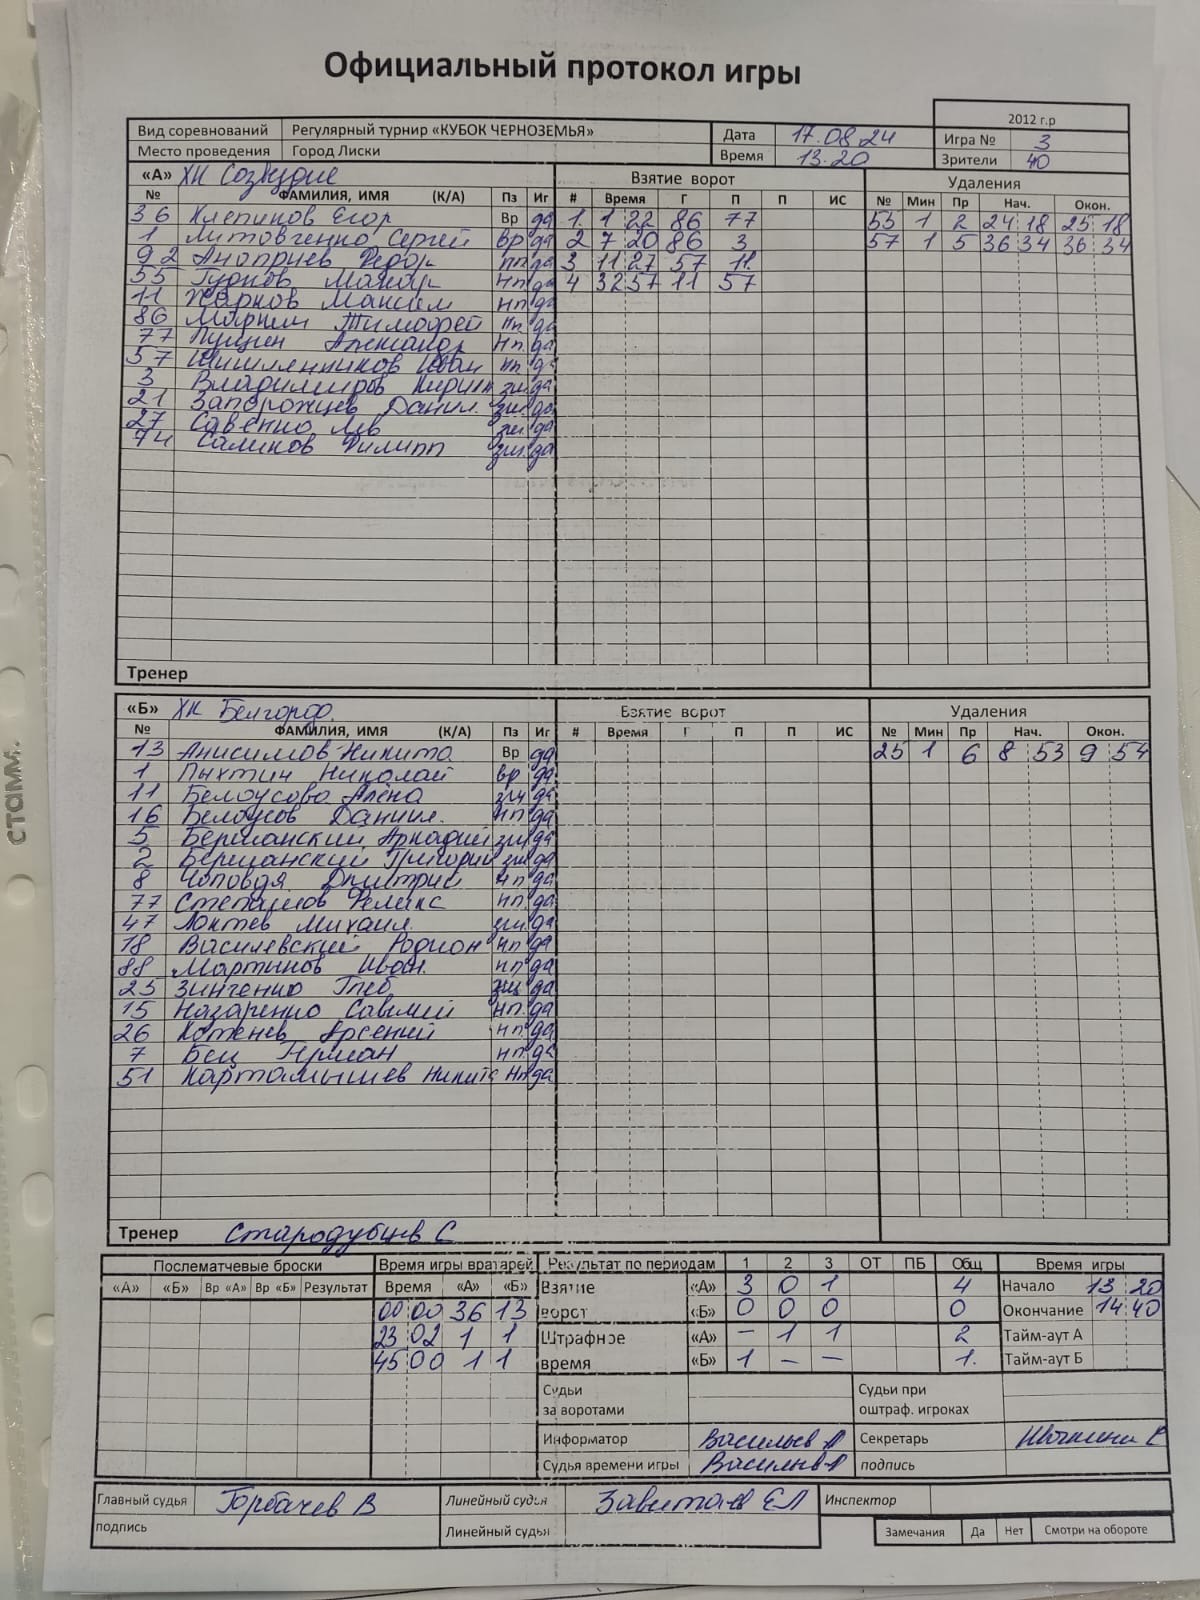 Официальный протокол игры
2012 г.р
Вид соревнований Регулярный турнир «КУБОК ЧЕРНОЗЕМЬЯ» Дата 17.08.24 Игра № 3
Место проведения Город Лиски Время 13.20 Зрители 40
«А» ХК Созвездие Взятие ворот Удаления
№ ФАМИЛИЯ, ИМЯ (К/А) Пз Иг # Время Г П П ИС № Мин Пр Нач. Окон.
36 Клепиков Егор Вр да 1. 1 22 86 77 55 1 2 24 18 25 18
1 Литовченко Сергей вр да 2 7 20 86 3 57 1 5 36 34 36 34
92 Федор да 3 11 27 57 11.
55 нп да 4 32 57 11 57
11 Жарков Максим нп да
86 Тимофей нп. да
77 Пущин Александр нп. да
57 Иван нп да
3 Владимиров Кирилл зщ. да
21 Запорожцев Данил. зщ. да
27 Савенко Лев зщ. да
74 Саликов Филипп зщ. да
Тренер
«Б» ХК Белгород. Взятие ворот Удаления
№ ФАМИЛИЯ, ИМЯ (К/А) Пз Иг # Время Г П П ИС № Мин Пр Нач. Окон.
13 Анисимов Никита Вр да 25 1 6 8 53 9 54
1 Пыхтин Николай вр да
11 Белоусова Алёна зщ да
16 Белоусов Даниил. нп да
5 Аркадий зщ да
2 Григорий зщ да
8 Чоповдя Дмитрий нп да
77 Степанов Феликс нп. да
47 Локтев Михаил зщ. да
18 Василевский Родион нп да
88 Мартинов Иван. нп да
25 Зинченко Глеб зщ да
15 Назаренко Савелий нп. да
26 Котенев Арсений нп. да
7 Бец Герман нп. да
51 Картамышев Никита нп да
Тренер Стародубцев С
Послематчевые броски Время игры вратарей Результат по периодам 1 2 3 ОТ ПБ Общ Время игры
«А» «Б» Вр «А» Вр «Б» Результат Время «А» «Б» Взятие «А» 3 0 1 4 Начало 13 20
00 00 36 13 ворот «Б» 0 0 0 0 Окончание 14 40
23 02 1 1 Штрафное «А» – 1 1 2 Тайм-аут А
45 00 1 1 время «Б» 1 – – 1. Тайм-аут Б
Судьи за воротами Судьи при оштраф. игроках
Информатор Васильев А Секретарь
Судья времени игры Васильев А подпись
Главный судья Горбачев В Линейный судья ЕЛ Инспектор
подпись Линейный судья Замечания Да Нет Смотри на обороте
стамм.